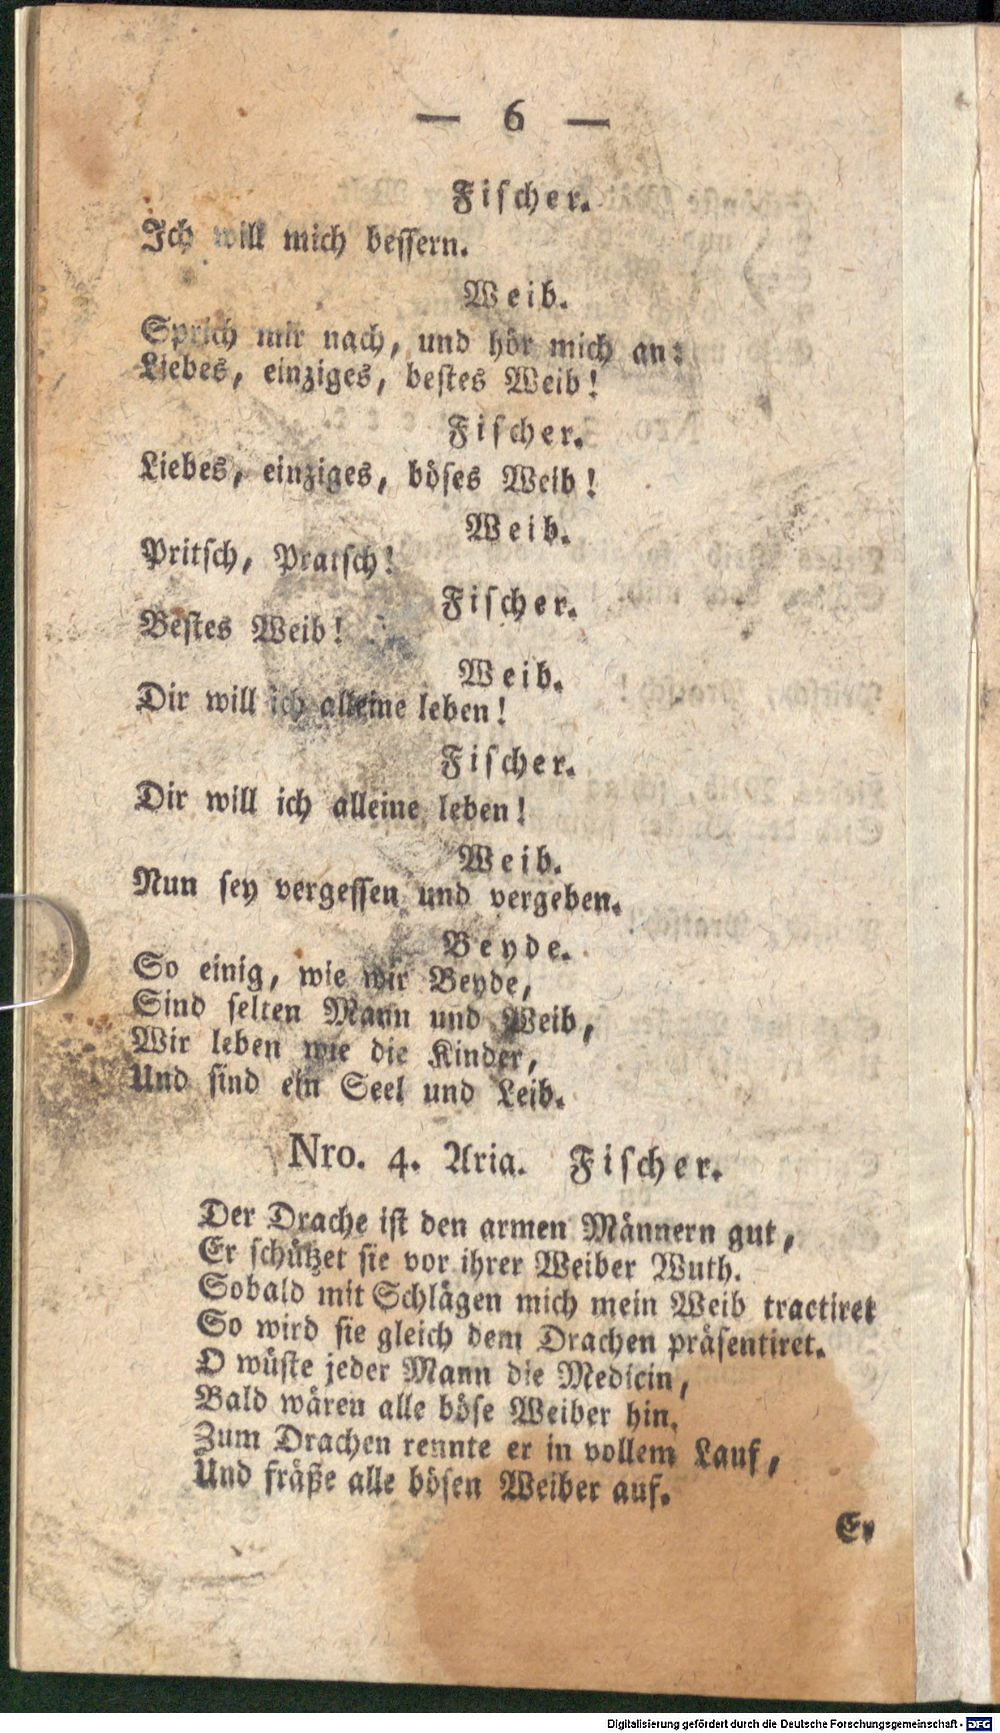 — 6 —
Fischer.
Ich will mich bessern.
Weib.
Sprich mir nach, und hör mich an:
Liebes, einziges, bestes Weib!
Fischer.
Liebes, einziges, böses Weib!
Weib.
Pritsch, Pratsch!
Fischer.
Bestes Weib!
Weib.
Dir will ich alleine leben!
Fischer.
Dir will ich alleine leben!
Weib.
Nun sey vergessen und vergeben.
Beyde.
So einig, wie wir Beyde,
Sind selten Mann und Weib,
Wir leben wie die Kinder,
Und sind ein Seel und Leib.
Nro. 4. Aria. Fischer.
Der Drache ist den armen Männern gut,
Er schützet sie vor ihrer Weiber Wuth.
Sobald mit Schlägen mich mein Weib tractiret
So wird sie gleich dem Drachen präsentiret.
O wüste jeder Mann die Medicin,
Bald wären alle böse Weiber hin.
Zum Drachen rennte er in vollem Lauf,
Und fräße alle bösen Weiber auf.
Er
Digitalisierung gefördert durch die Deutsche Forschungsgemeinschaft - DFG